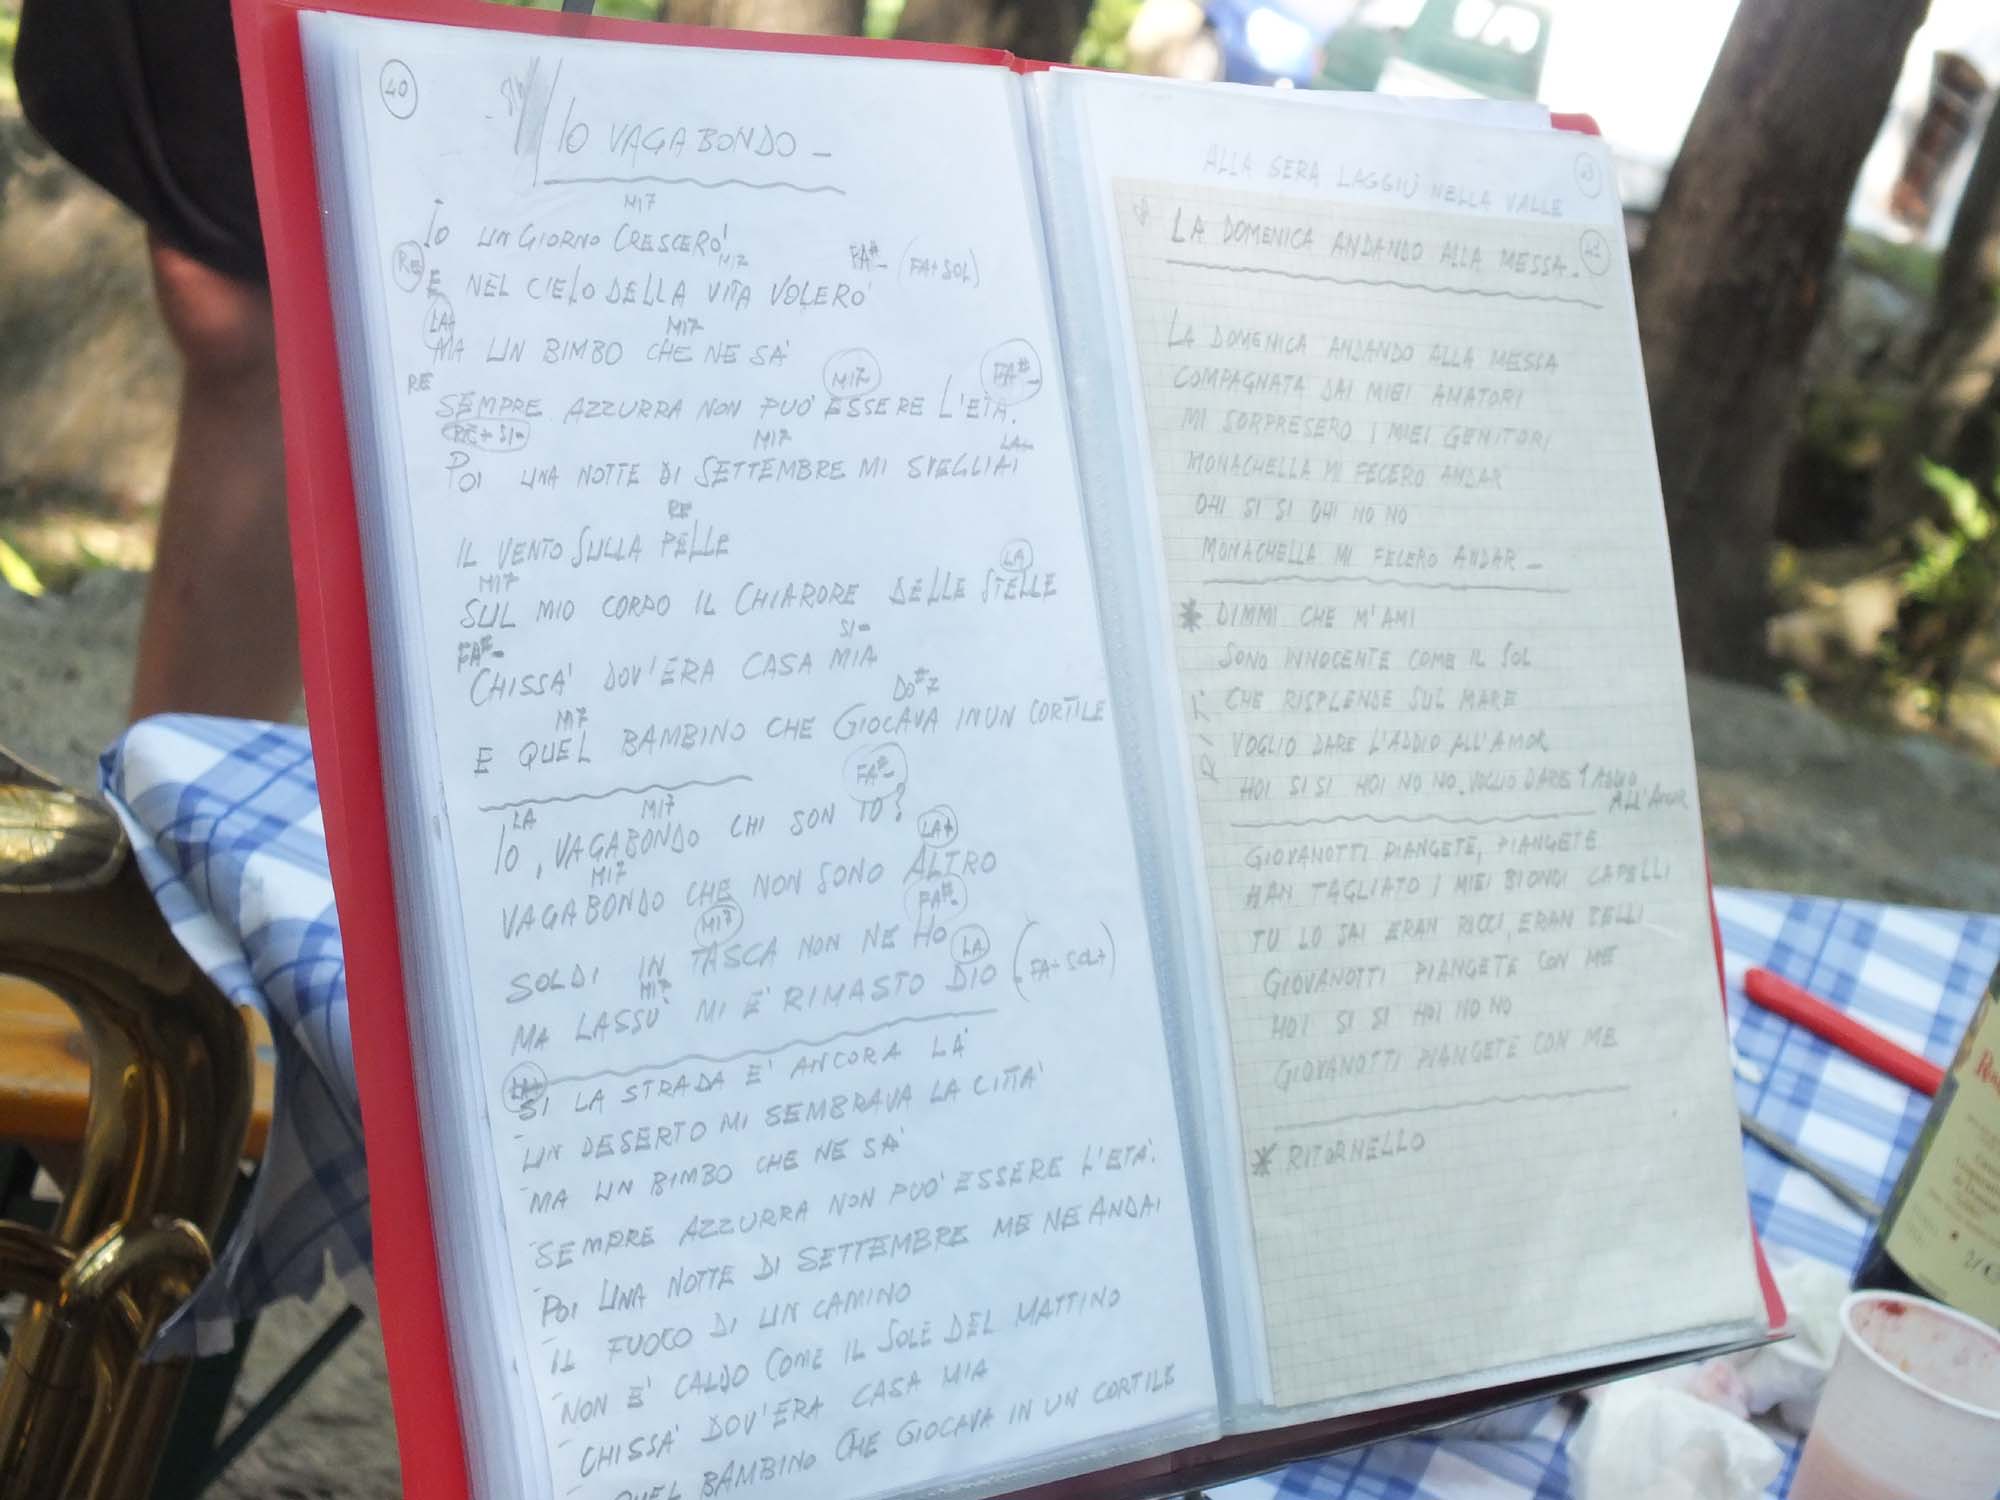 40
IO VAGABONDO -
MI7
IO UN GIORNO CRESCERO'
RE MI7 FA#- (FA+SOL)
E NEL CIELO DELLA VITA VOLERO'
LA+ MI7
MA UN BIMBO CHE NE SA'
RE MI7 FA#-
SEMPRE AZZURRA NON PUO' ESSERE L'ETA'.
RE+ SI- MI7 LA+
POI UNA NOTTE DI SETTEMBRE MI SVEGLIAI
RE
IL VENTO SULLA PELLE
MI7 LA
SUL MIO CORPO IL CHIARORE DELLE STELLE
FA#- SI-
CHISSA' DOV'ERA CASA MIA
MI7 DO#7
E QUEL BAMBINO CHE GIOCAVA IN UN CORTILE
LA MI7 FA#-
IO, VAGABONDO CHI SON IO?
MI7 LA+
VAGABONDO CHE NON SONO ALTRO
MI7 FA#-
SOLDI IN TASCA NON NE HO
MI7 LA (FA+ SOL+)
MA LASSU' MI E' RIMASTO DIO
LA+
SI LA STRADA E' ANCORA LA'
UN DESERTO MI SEMBRAVA LA CITTA'
MA UN BIMBO CHE NE SA'
SEMPRE AZZURRA NON PUO' ESSERE L'ETA'.
POI UNA NOTTE DI SETTEMBRE ME NE ANDAI
IL FUOCO DI UN CAMINO
NON E' CALDO COME IL SOLE DEL MATTINO
CHISSA' DOV'ERA CASA MIA
QUEL BAMBINO CHE GIOCAVA IN UN CORTILE
ALLA SERA LAGGIÙ NELLA VALLE
LA DOMENICA ANDANDO ALLA MESSA.
LA DOMENICA ANDANDO ALLA MESSA
COMPAGNATA DAI MIEI AMATORI
MI SORPRESERO I MIEI GENITORI
MONACHELLA MI FECERO ANDAR
OHI SI SI OHI NO NO
MONACHELLA MI FECERO ANDAR -
* DIMMI CHE M'AMI
SONO INNOCENTE COME IL SOL
CHE RISPLENDE SUL MARE
VOGLIO DARE L'ADDIO ALL'AMOR
HOI SI SI HOI NO NO. VOGLIO DARE L'ADDIO
ALL'AMOR
RIT.
GIOVANOTTI PIANGETE, PIANGETE
HAN TAGLIATO I MIEI BIONDI CAPELLI
TU LO SAI ERAN RICCI, ERAN BELLI
GIOVANOTTI PIANGETE CON ME
HOI SI SI HOI NO NO
GIOVANOTTI PIANGETE CON ME
* RITORNELLO